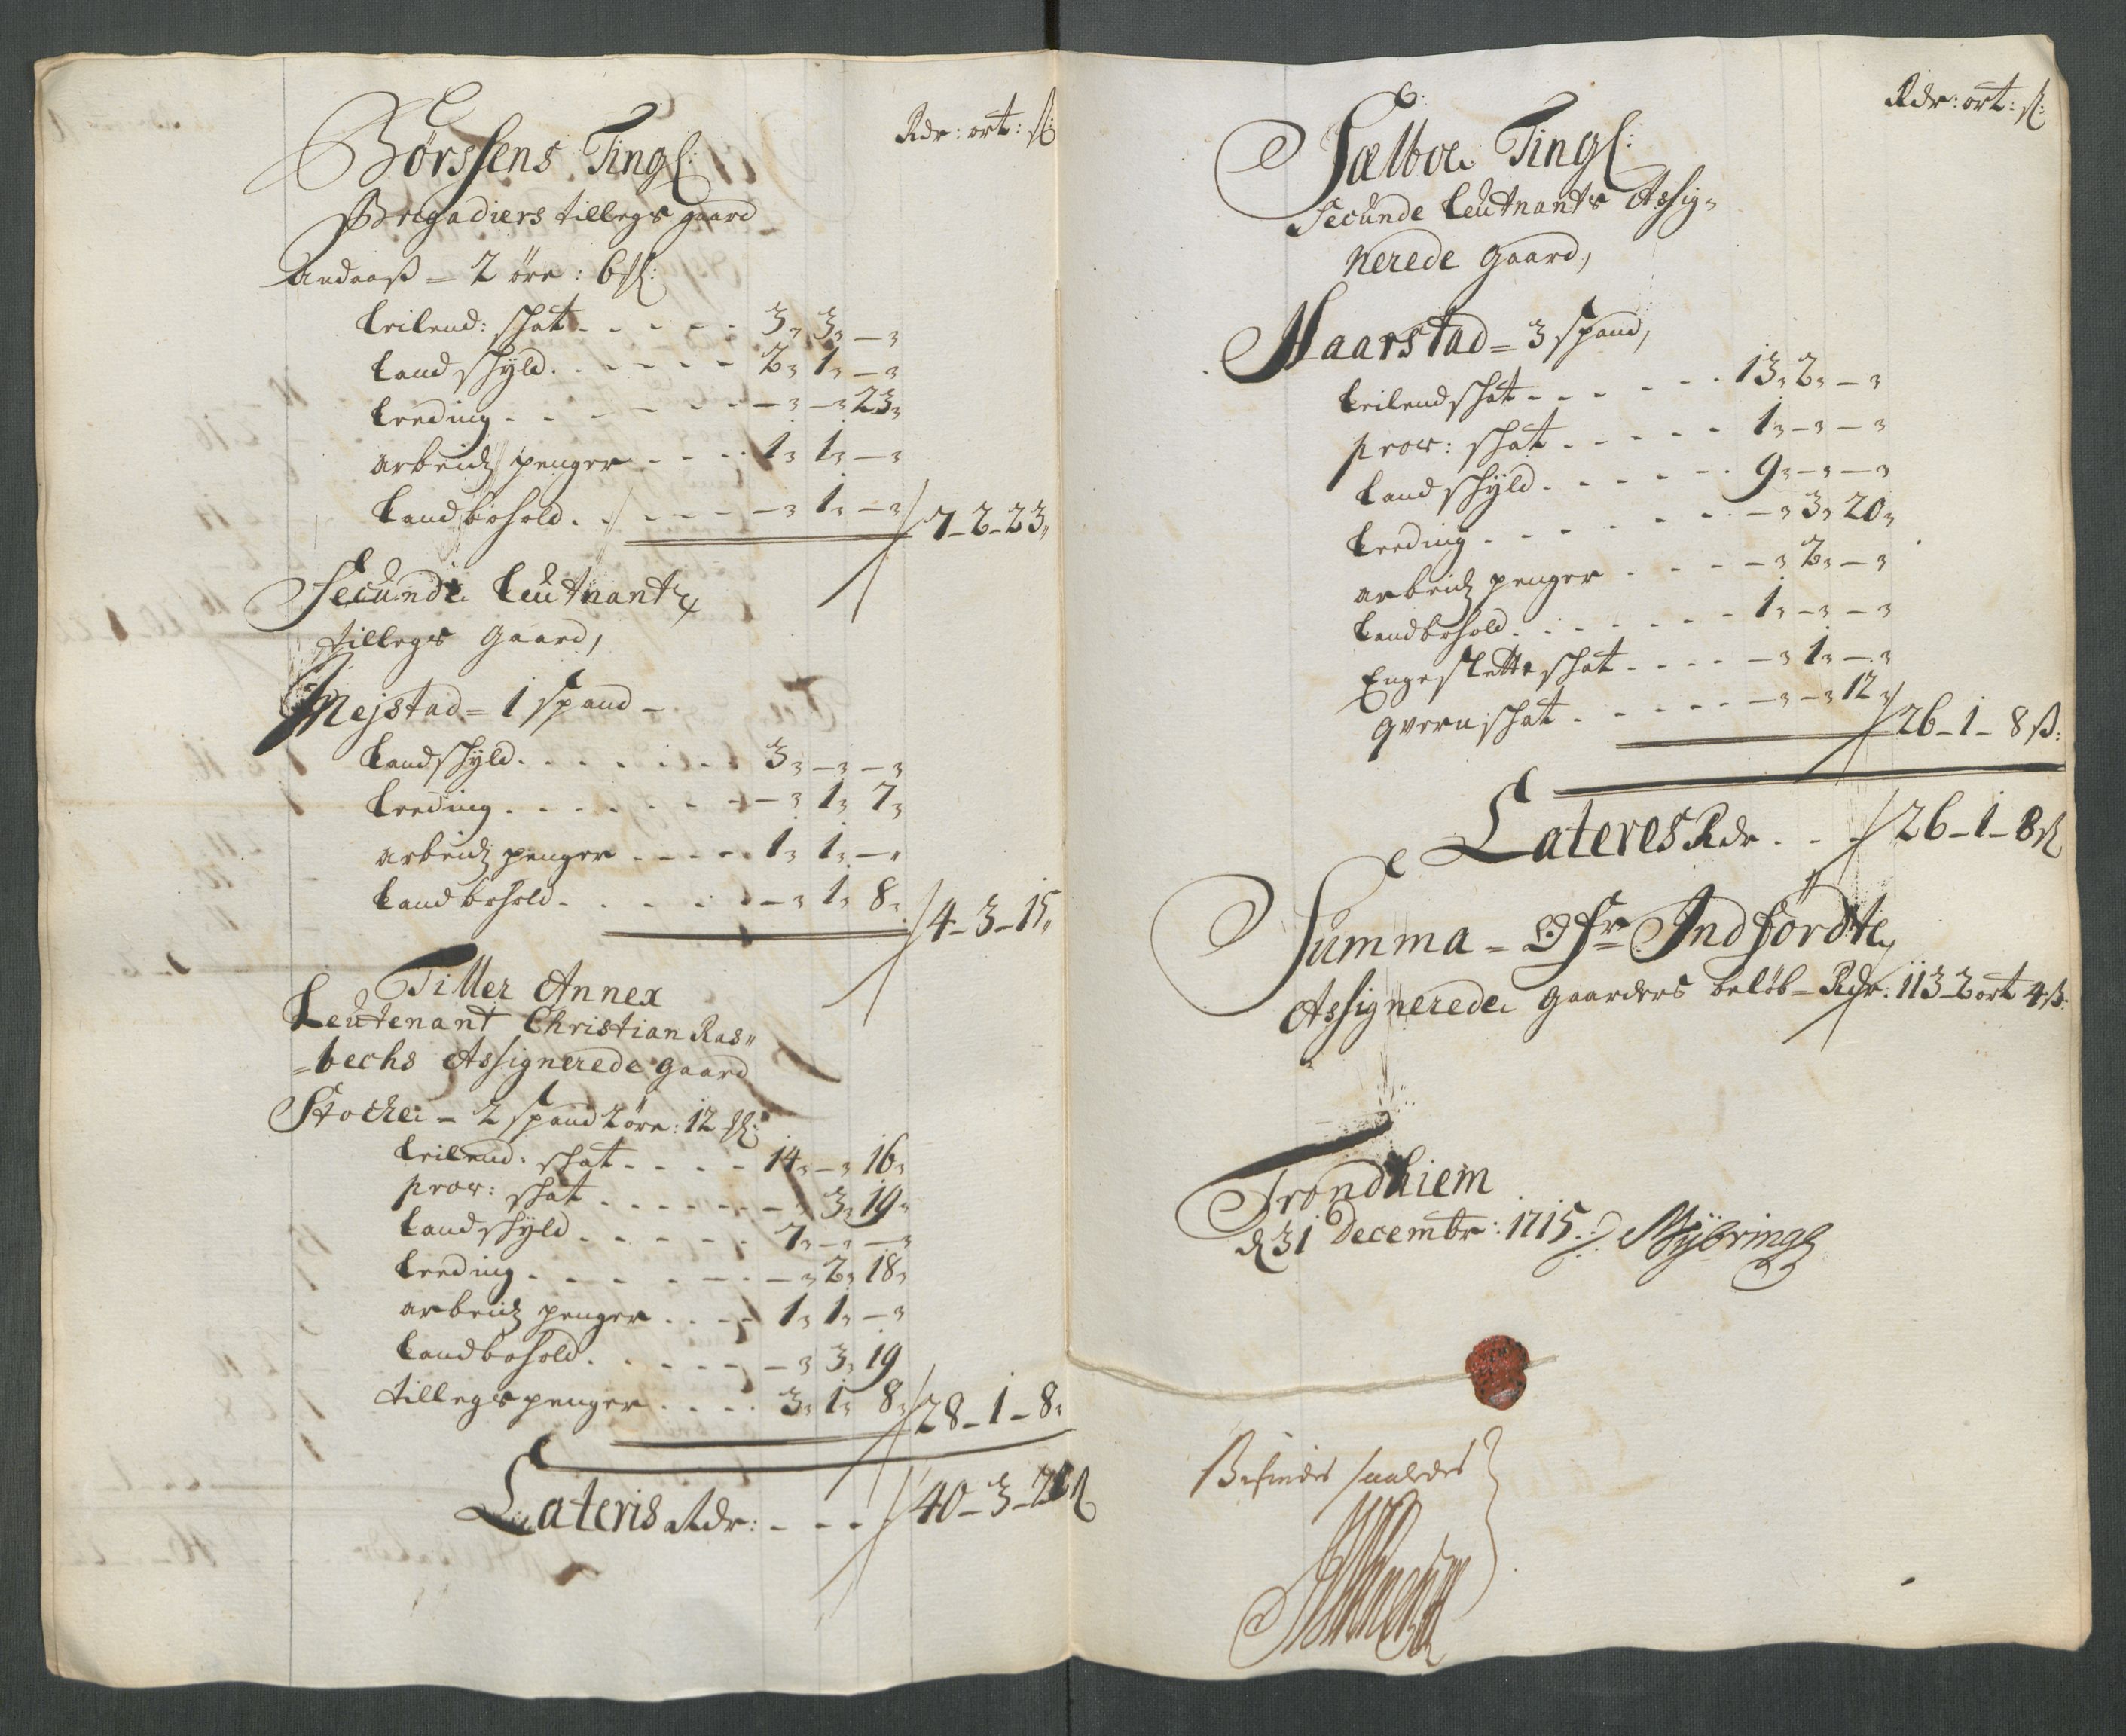 Rdr: ort: ß
Børssens Tingl:
Brigadiers tillegs gaard
Andaaß = 2 øre: 6 ſl:
leilend: schat . . . . . 3, 3, —,
landschÿld . . . . . 2, 1, —,
leeding . . . . . —, —, 23,
arbeidz penger . . . . 1, 1, —,
landbohold . . . . . —, 1, —, / 7 – 2 – 23,,
Secunde Leutnantz
tillegs gaard,
Mejstad = 1 spand –
landschÿld . . . . . 3, —, —,
leeding . . . . . —, 1, 7,
arbeidz penger . . . . . 1, 1, —,
landbohold . . . . . —, 1, 8, / 4 – 3 – 15,,
Tiller Annex
Leutenant Christian Ras„
=bechs Assignerede gaard
Stocke – 2 spand 2 øre: 12 ſl:
leilend: schat . . . . 14, —, 16,
prov: schat . . . . . —, 3, 19,
landschÿld . . . . . 7, —, —,
leeding . . . . . —, 2, 18,
arbeidz penger . . . . 1, 1, —,
landbohold . . . . . —, 3, 19
tillegspenger . . . . 3, 1, 8, / 28 – 1 – 8,
Lateris Rdr: . . . / 40 – 3 – 22 ß
Rdr: ort: ß:
Sælboe Tingl:
Secunde Leutnants Assig„
nerede gaard,
Haarstad = 3 spand,
leilend schat . . . . . . 13, 2, —,
prov: schat . . . . . 1, —, —,
landschÿld . . . . . 9, —, —,
leeding . . . . . —, 3, 20,
arbeidz penger . . . . —, 2, —,
landbohold . . . . . . 1, —, —,
Engeslette schat . . . . —, 1, —,
qvernschat . . . . . —, —, 12, / 26 – 1 – 8 ß:
Lateres Rdr . . . / 26 – 1 – 8 ß
Summa – Indførdte
Assignerede gaarders beløb – Rdr: 113 – 2 ort 4 ß
Trondhiem
d 31 Decembr: 1715.
Befindes saaledes